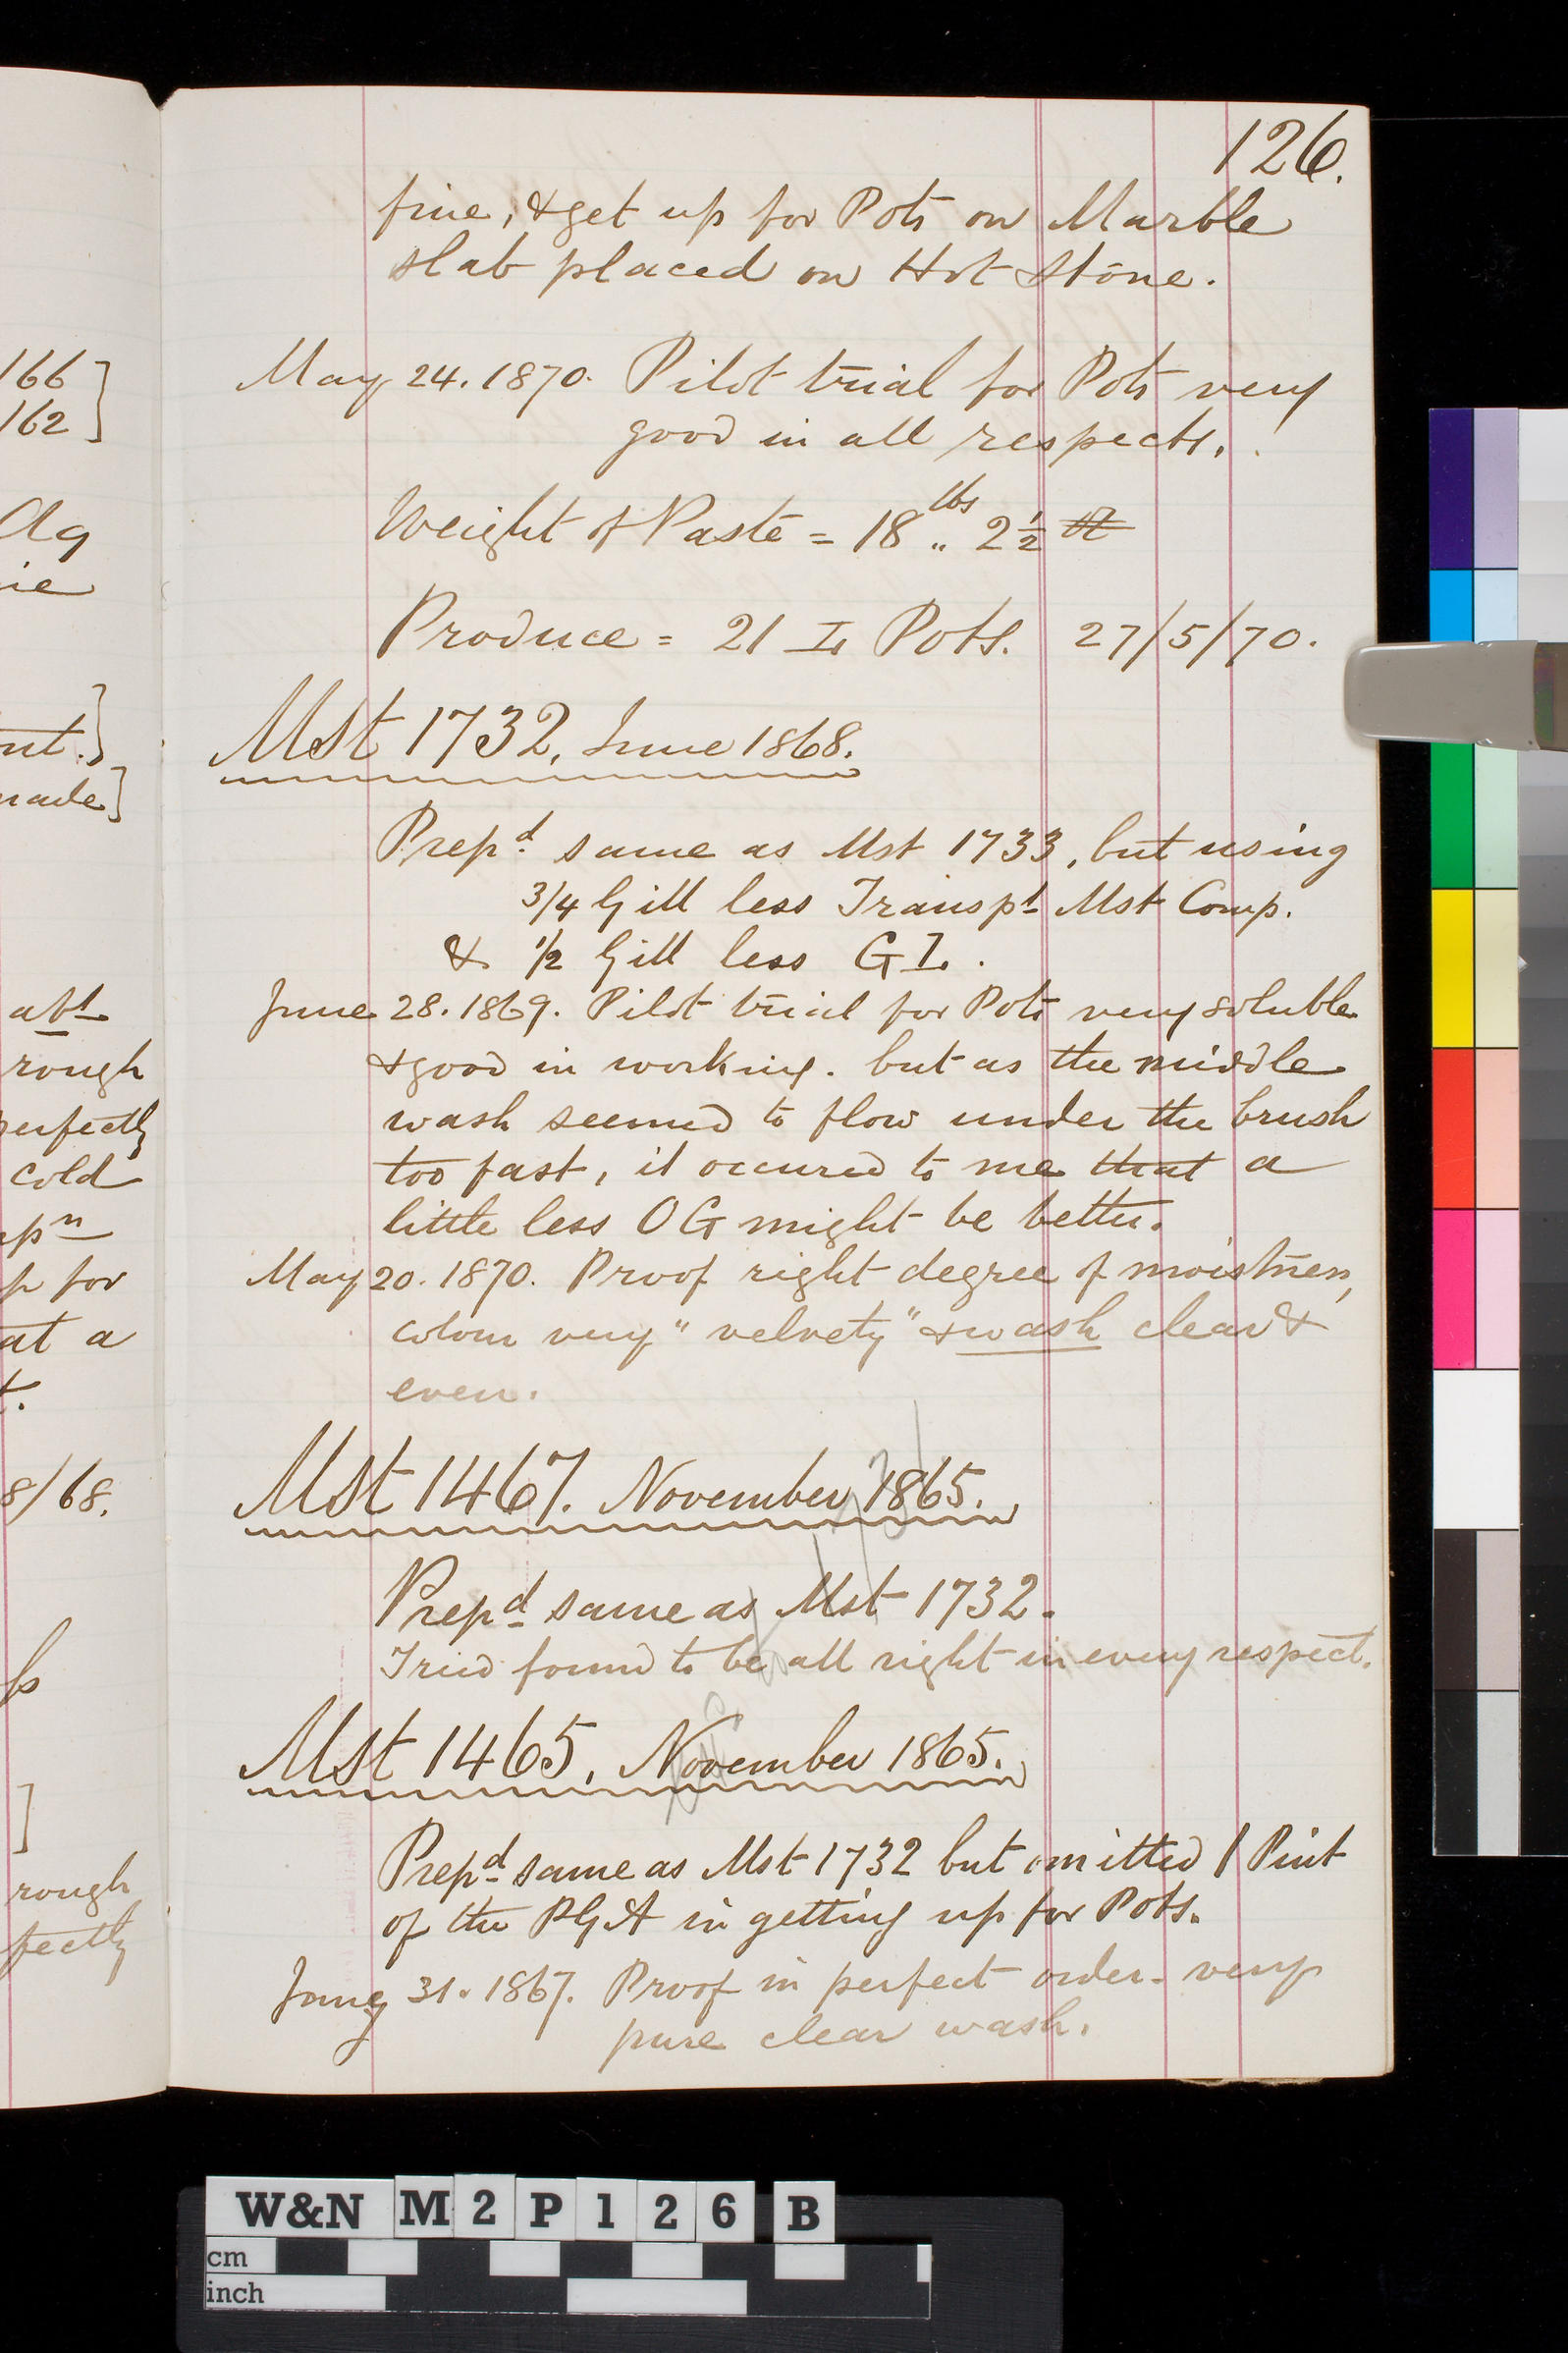 126.
fine, & get up for Pots on Marble
slab placed on Hot Stone.
166]
162]
May 24. 1870. Pilot trial for Pots very
good in all respects.
Weight of Paste = 18 lbs .. 2 1/2
Produce = 21 L Pots. 27/5/70.
Mst 1732, June 1868.
Prepd. same as Mst 1733, but using
3/4 Gill less Transpt Mst Comp.
& 1/2 Gill less GL.
June 28. 1869. Pilot trial for Pots very soluble
& good in working. but as the middle
wash seemed to flow under the brush
too fast, it occured to me that a
little less OG might be better.
May 20. 1870. Proof right degree of moistness,
colour very "velvety" & wash clear &
even.
Mst 1467. November 1865.
Prepd same as Mst 1732.
Tried found to be all right in every respect.
Mst 1465, November 1865.
Prepd same as Mst 1732 but omitted 1 Pint
of the PGA in getting up for Pots.
Jany 31. 1867. Proof in perfect order. very
pure clear wash.
abt
rough
perfectly
cold
p for
at a
8/68.
rough
W&N M2P126 B
cm
inch